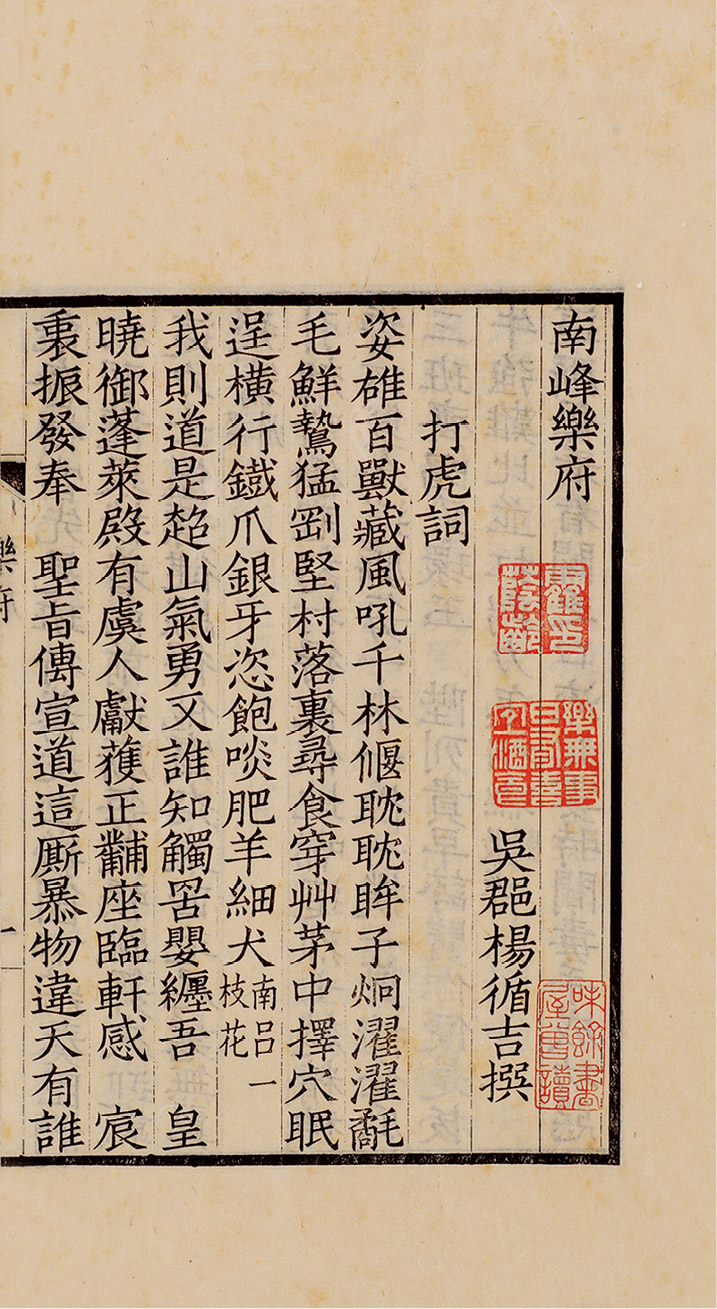 南峰樂府
吳郡楊循吉撰
打虎詞
姿雄百獸藏風吼千林偃眈眈眸子炯濯濯氄
毛鮮鷙猛剛堅村落裏尋食穿艸茅中擇穴眠
逞橫行鐵爪銀牙恣飽啖肥羊細犬南呂一枝花
我則道是趂山氣勇又誰知觸罟嬰纏吾 皇
曉御蓬萊殿有虞人獻獲正黼座臨軒感 宸
衷振發奉 聖旨傳宣道這厮暴物違天有誰
樂府
一
味餘書屋曾讀